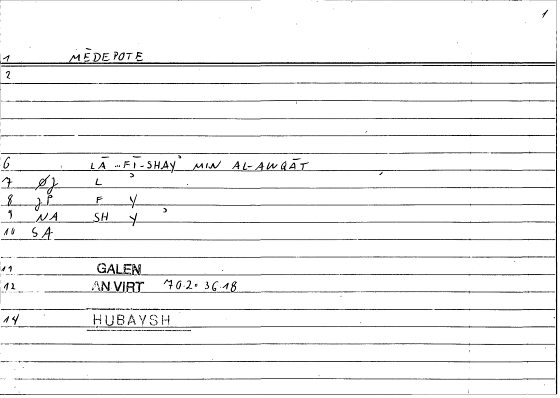 1
1 MĒDEPOTE
2
6 LĀ -FĪ-SHAYʾ MIN AL-AWQĀT
7 L ʾ
8 F Y
9 NA SH Y ʾ
10 SA
11 GALEN
12 AN VIRT 70.2.36.18
14 HUBAYSH